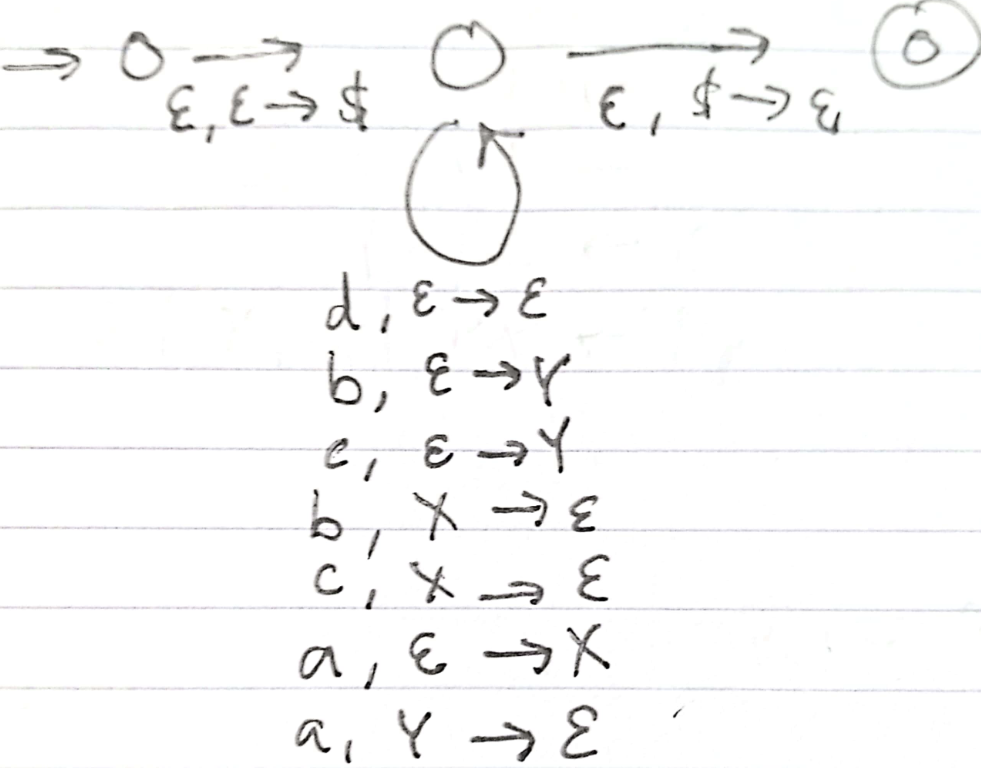 ε, ε → $ ε, $ → ε
d, ε → ε
b, ε → Y
c, ε → Y
b, X → ε
c, X → ε
a, ε → X
a, Y → ε